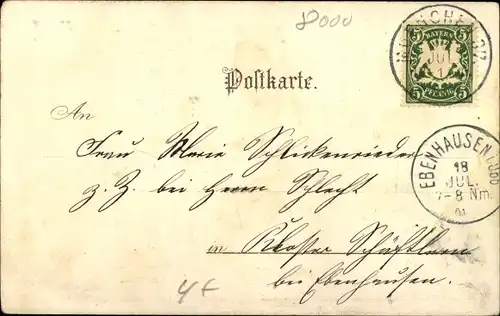 8000
MÜNCHEN
JUL
1
BAYERN
5 5
5 PFENNIG 5
Postkarte.
An
Frau Marie Schlickenrieder
z. Z. bei Herrn Schlecht
in Kloster Schäftlarn
bei Ebenhausen.
EBENHAUSEN
18
JUL.
7-8 Nm.
01
4 f